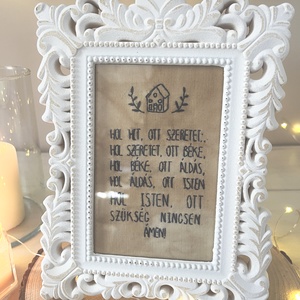 HOL HIT, OTT SZERETET,
HOL SZERETET, OTT BÉKE,
HOL BÉKE, OTT ÁLDÁS,
HOL ÁLDÁS, OTT ISTEN
HOL ISTEN, OTT
SZÜKSÉG NINCSEN
ÁMEN!